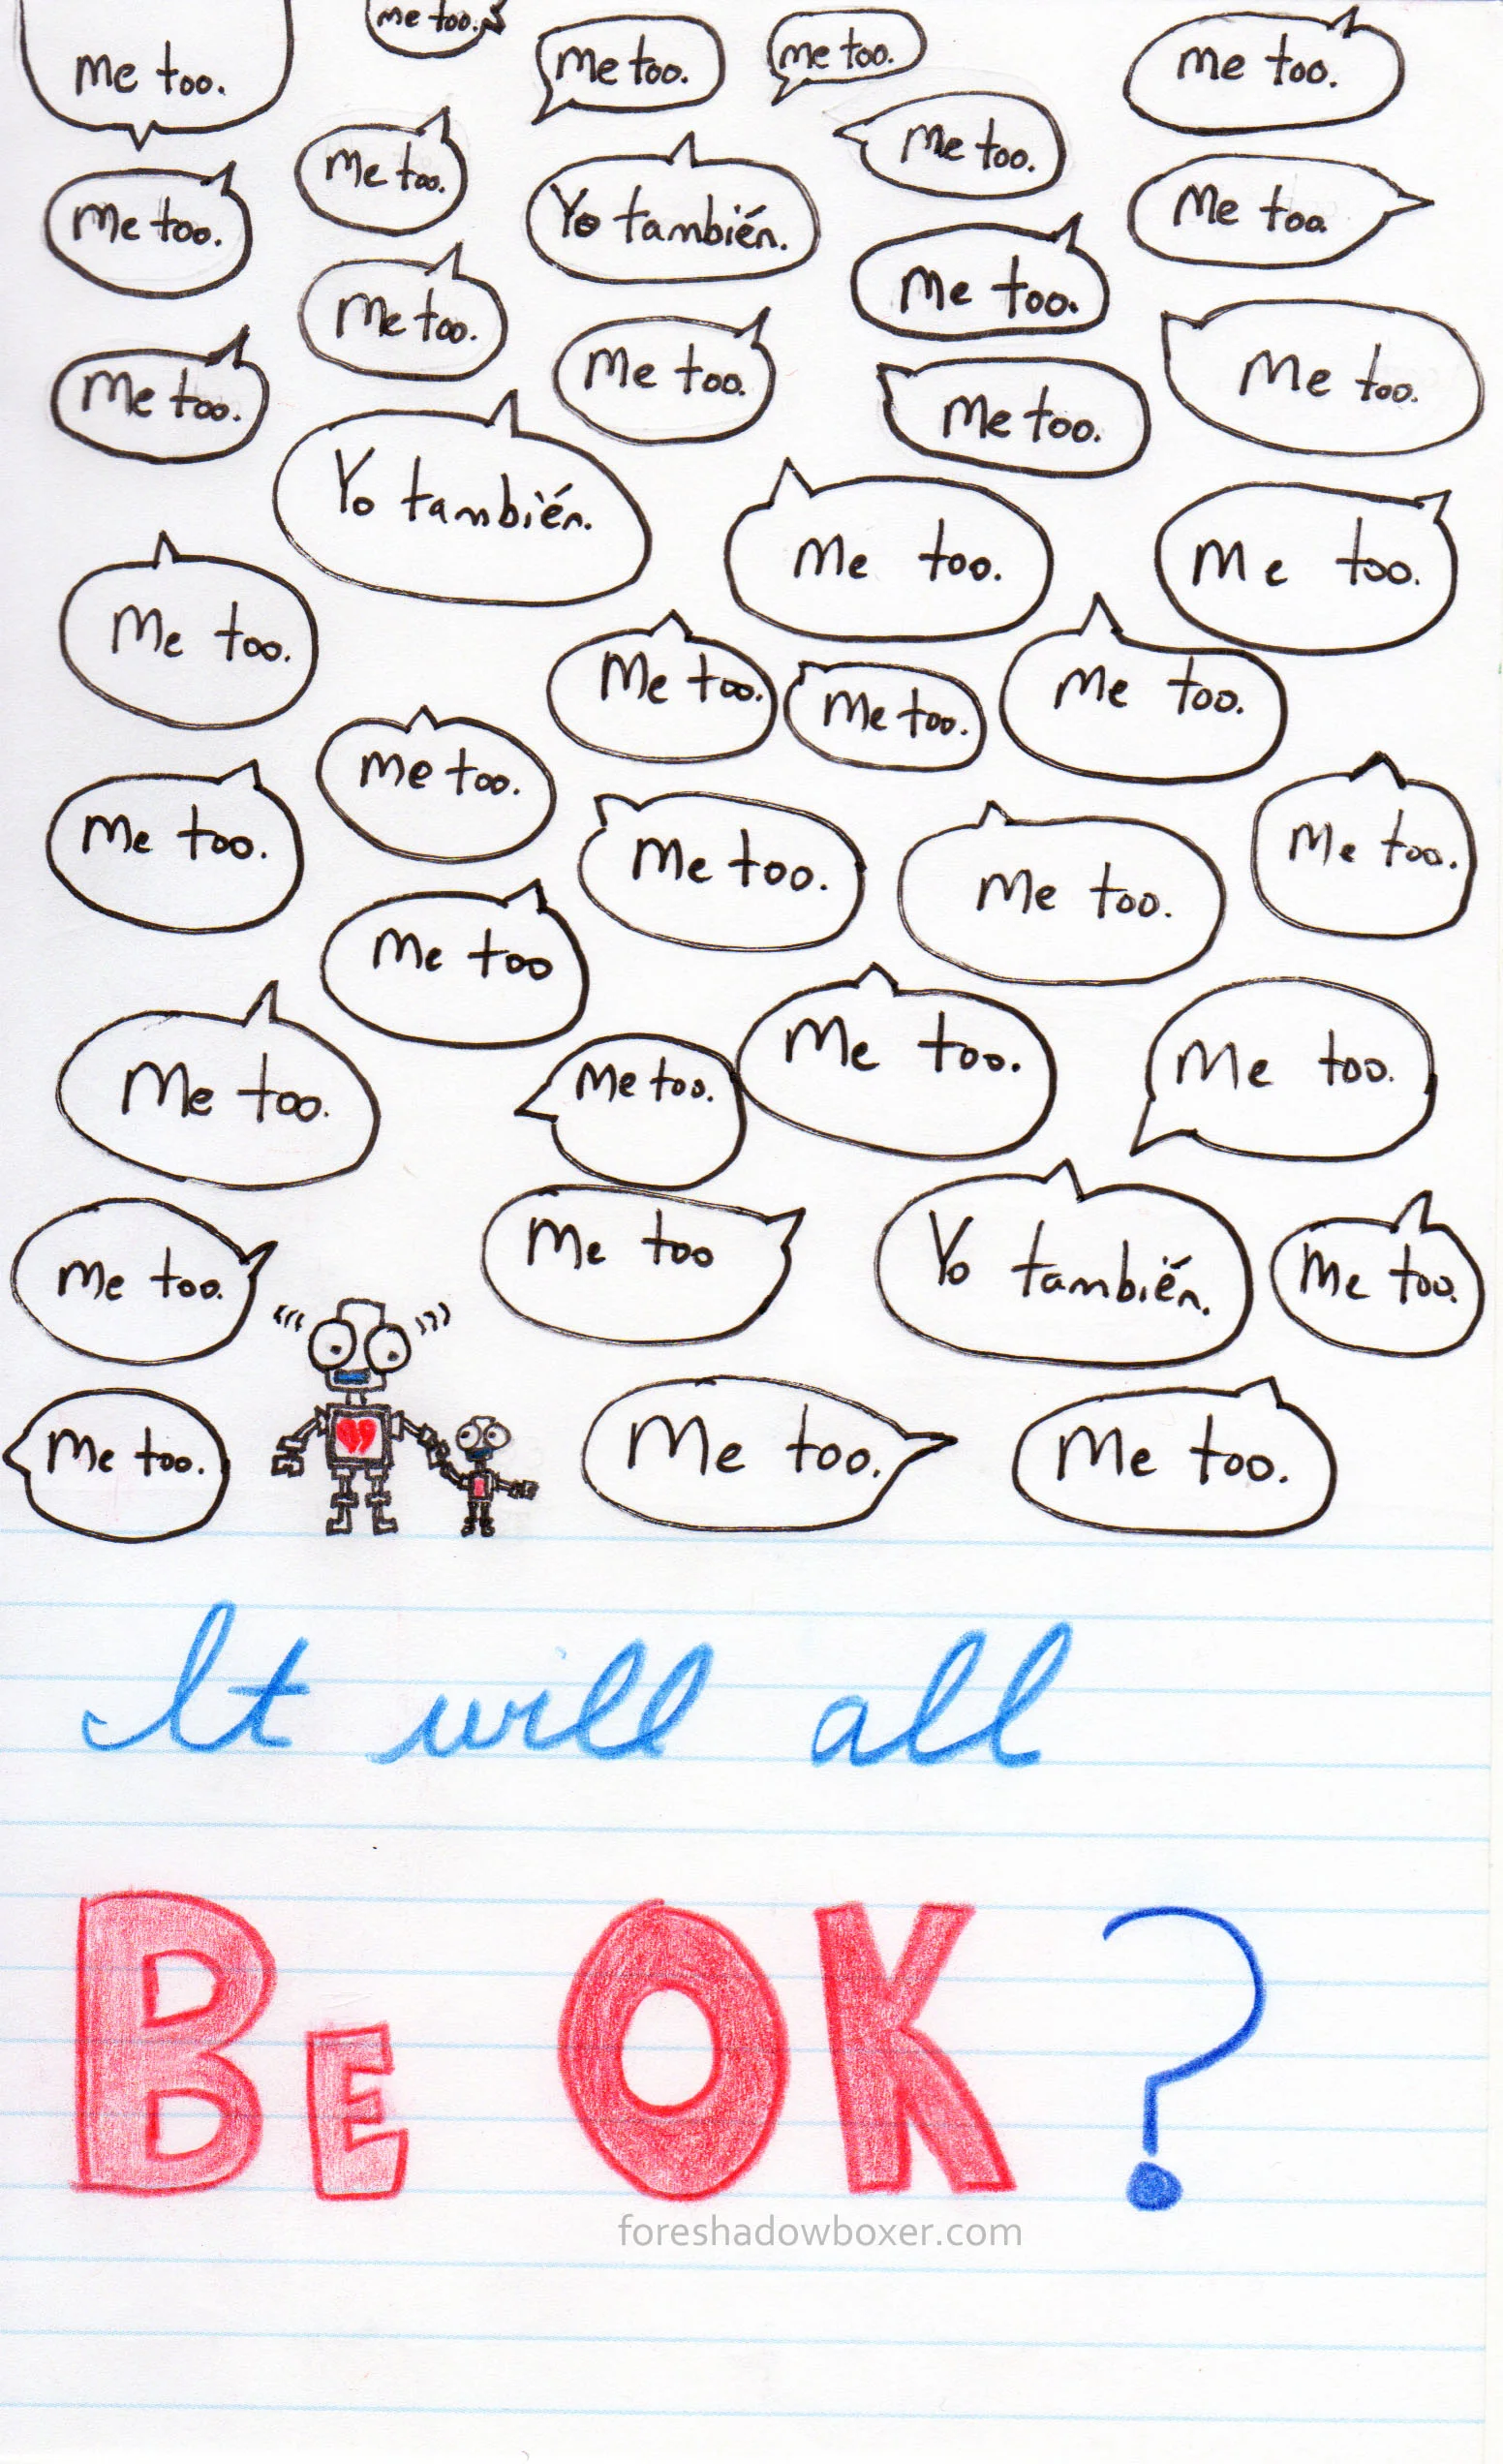 me too.
me too.
Me too.
me too.
Me too.
Me too.
Me too.
Me too.
Yo también.
Me too.
Me too.
Me too.
Me too.
Me too.
Me too.
Me too.
Yo también.
Me too.
Me too.
Me too.
Me too.
Me too.
Me too.
Me too.
Me too.
Me too.
Me too.
Me too.
Me too
Me too.
Me too.
Me too.
Me too.
Me too.
Me too
Yo también.
Me too.
Me too.
Me too.
Me too.
It will all
BE OK?
foreshadowboxer.com